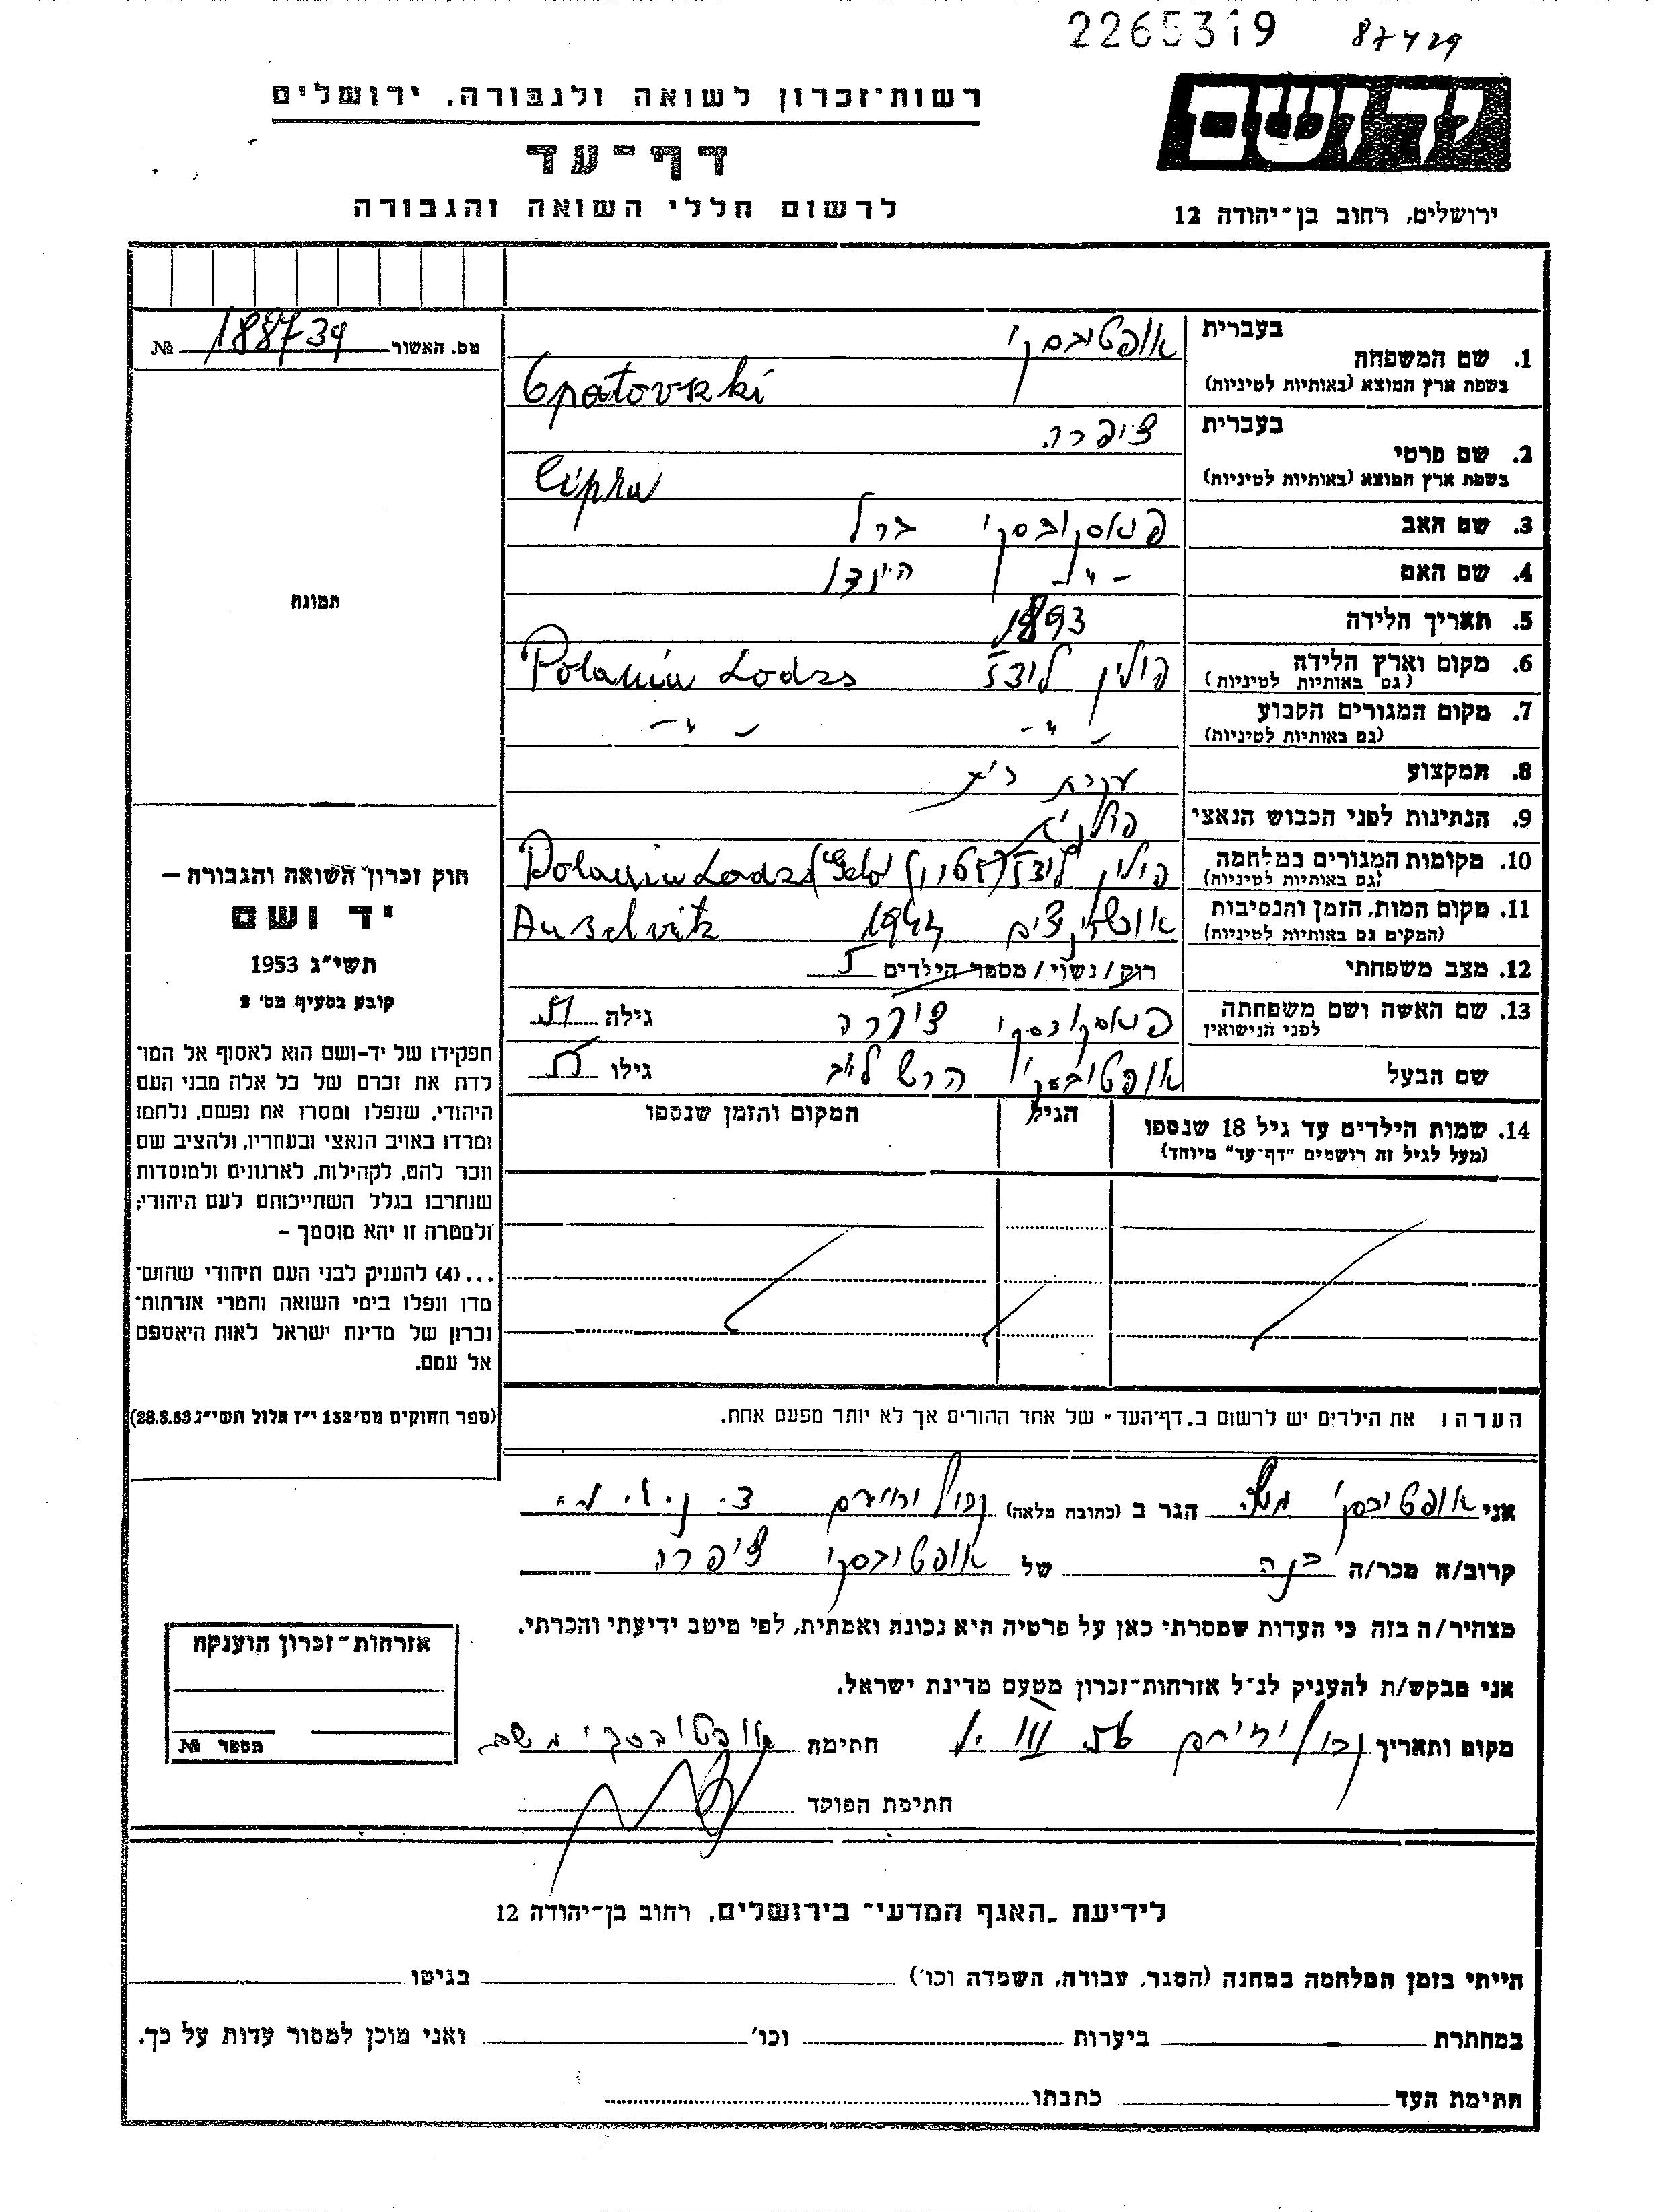 2265319 87429
רשות־זכרון לשואה ולגבורה, ירושלים
יד ושם
דף־עד
לרשום חללי השואה והגבורה
ירושלים, רחוב בן־יהודה 12
מס. האשור 188739 №
בעברית
1. שם המשפחה
אופטובסקי
בשפת ארץ המוצא (באותיות לטיניות)
Opatovszki
בעברית
2. שם פרטי
ציפרה
בשפת ארץ המוצא (באותיות לטיניות)
Cipra
3. שם האב ברל
4. שם האם הינדל
5. תאריך הלידה 1893
6. מקום וארץ הלידה פולין לודז Polania Lodzs
(גם באותיות לטיניות)
7. מקום המגורים הקבוע - " - - " -
(גם באותיות לטיניות)
8. המקצוע עקרת בית
9. הנתינות לפני הכבוש הנאצי פולניה
10. מקומות המגורים במלחמה פולין לודז (גטו) Polania Lodzs (Geto)
(גם באותיות לטיניות)
11. מקום המות, הזמן והנסיבות 1944 Auschvitz
(המקים גם באותיות לטיניות)
12. מצב משפחתי רוק / נשוי / מספר הילדים 5
13. שם האשה ושם משפחתה לפני הנישואין ציפרה גילה
שם הבעל אופטובסקי הרש לייב גילו
14. שמות הילדים עד גיל 18 שנספו הגיל המקום והזמן שנספו
(מעל לגיל זה רושמים "דף־עד" מיוחד)
תמונה
חוק זכרון השואה והגבורה —
יד ושם
תשי"ג 1953
קובע בסעיף מס' 2
תפקידו של יד-ושם הוא לאסוף אל המו־
לדת את זכרם של כל אלה מבני העם
היהודי, שנפלו ומסרו את נפשם, נלחמו
ומרדו באויב הנאצי ובעוזריו, ולהציב שם
וזכר להם, לקהילות, לארגונים ולמוסדות
שנחרבו בגלל השתייכותם לעם היהודי;
ולמטרה זו יהא מוסמך —
...(4) להעניק לבני העם היהודי שהוש־
מדו ונפלו בימי השואה והמרי אזרחות־
זכרון של מדינת ישראל לאות היאספם
אל עמם.
(ספר החוקים מס' 132 י"ז אלול תשי"ג 28.8.53)
הערה: את הילדים יש לרשום ב"דף־העד" של אחד ההורים אך לא יותר מפעם אחת.
אני אופטובסקי משה הגר ב (כתובת מלאה)
קרוב/ה מכר/ה בנה של אופטובסקי ציפרה
מצהיר/ה בזה כי העדות שמסרתי כאן על פרטיה היא נכונה ואמתית, לפי מיטב ידיעתי והכרתי.
אני מבקש/ת להעניק לנ"ל אזרחות־זכרון מטעם מדינת ישראל.
מקום ותאריך חתימה אופטובסקי משה
חתימת הפוקד
אזרחות־זכרון הוענקה
מספר №
לידיעת "האגף המדעי" בירושלים, רחוב בן־יהודה 12
הייתי בזמן המלחמה במחנה (הסגר, עבודה, השמדה וכו') בגיטו
במחתרת ביערות וכו' ואני מוכן למסור עדות על כך.
חתימת העד כתבתו